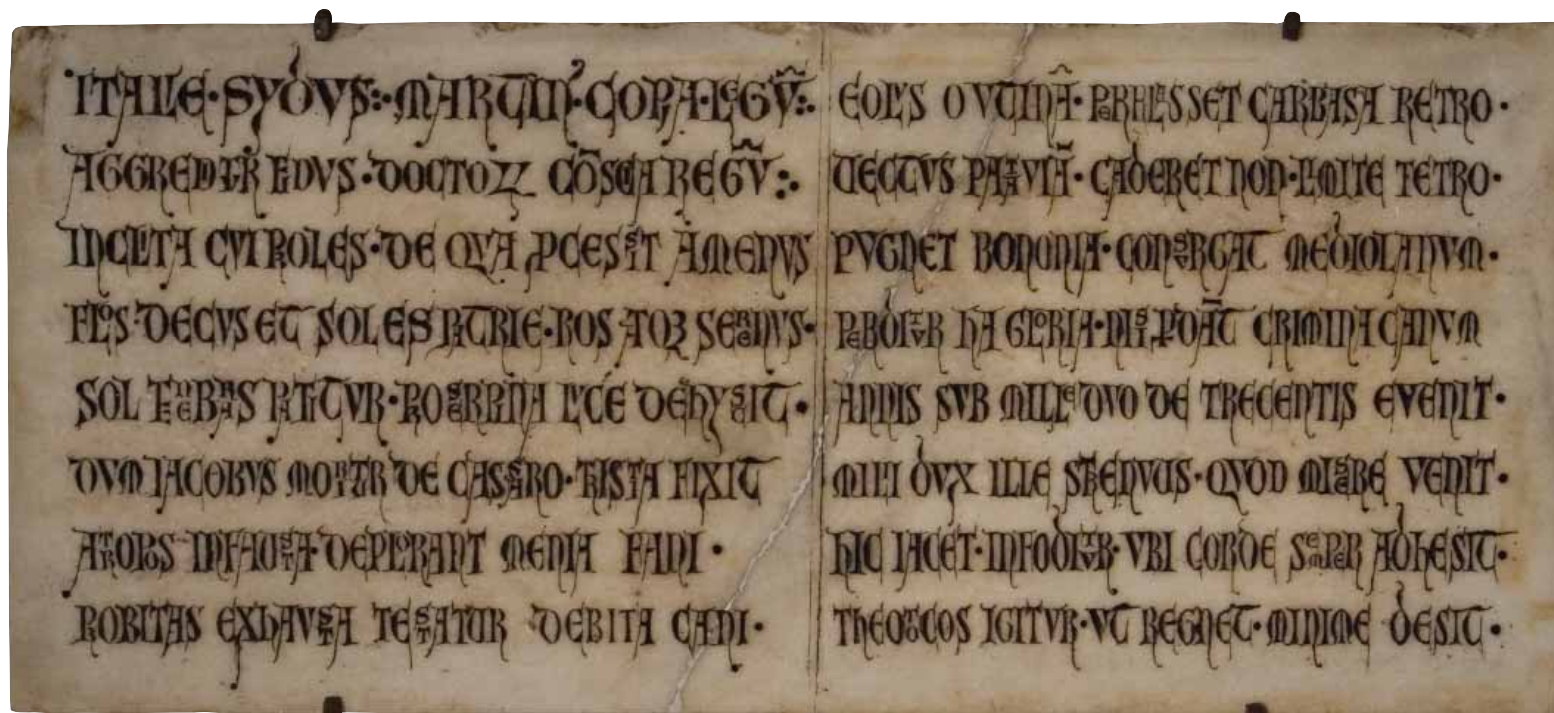 ITALIE·SYDVS:·MARTIN'·COPA·LEGV̄:·
AGGREDITVR FEDVS·DOCTOꝜ CŌSCIA REGV̄:·
INCLITA CVI PROLES·DE QVA ꝒCESSIT AMENVS
FLOS·DECVS ET SOLES PATRIE·ROS ATQ3 SERENVS·
SOL TENEBRAS PATITVR·PROSERPINA LVCE DEHYSCIT·
DVM IACOBVS MORITVR DE CASSARO·TRISTIA FIXIT
ATROPOS INFAUSTA·DEPLORANT MENIA FANI·
PROBITAS EXHAVSTA TESTATUR DEBITA CANI·
EOLVS O VTINĀ·PERFLASSET CARBASA RETRO·
VECTVS PATAVIĀ·CADERET NON·LIMITE TETRO·
PVGNET BONONIA·CONSVRGAT MEDIOLANVM·
GLORIA·NISI CRIMINA CANVM
ANNIS SVB MILLE DVO DE TRECENTIS EVENIT·
MILI DVX ILLE STRENVUS·QVOD MISERE VENIT·
HIC IACET·INFODITVR·VBI CORDE SEMPER ADHESIT·
THEOTOCOS IGITVR·VT REGNET·MINIME DESIT·